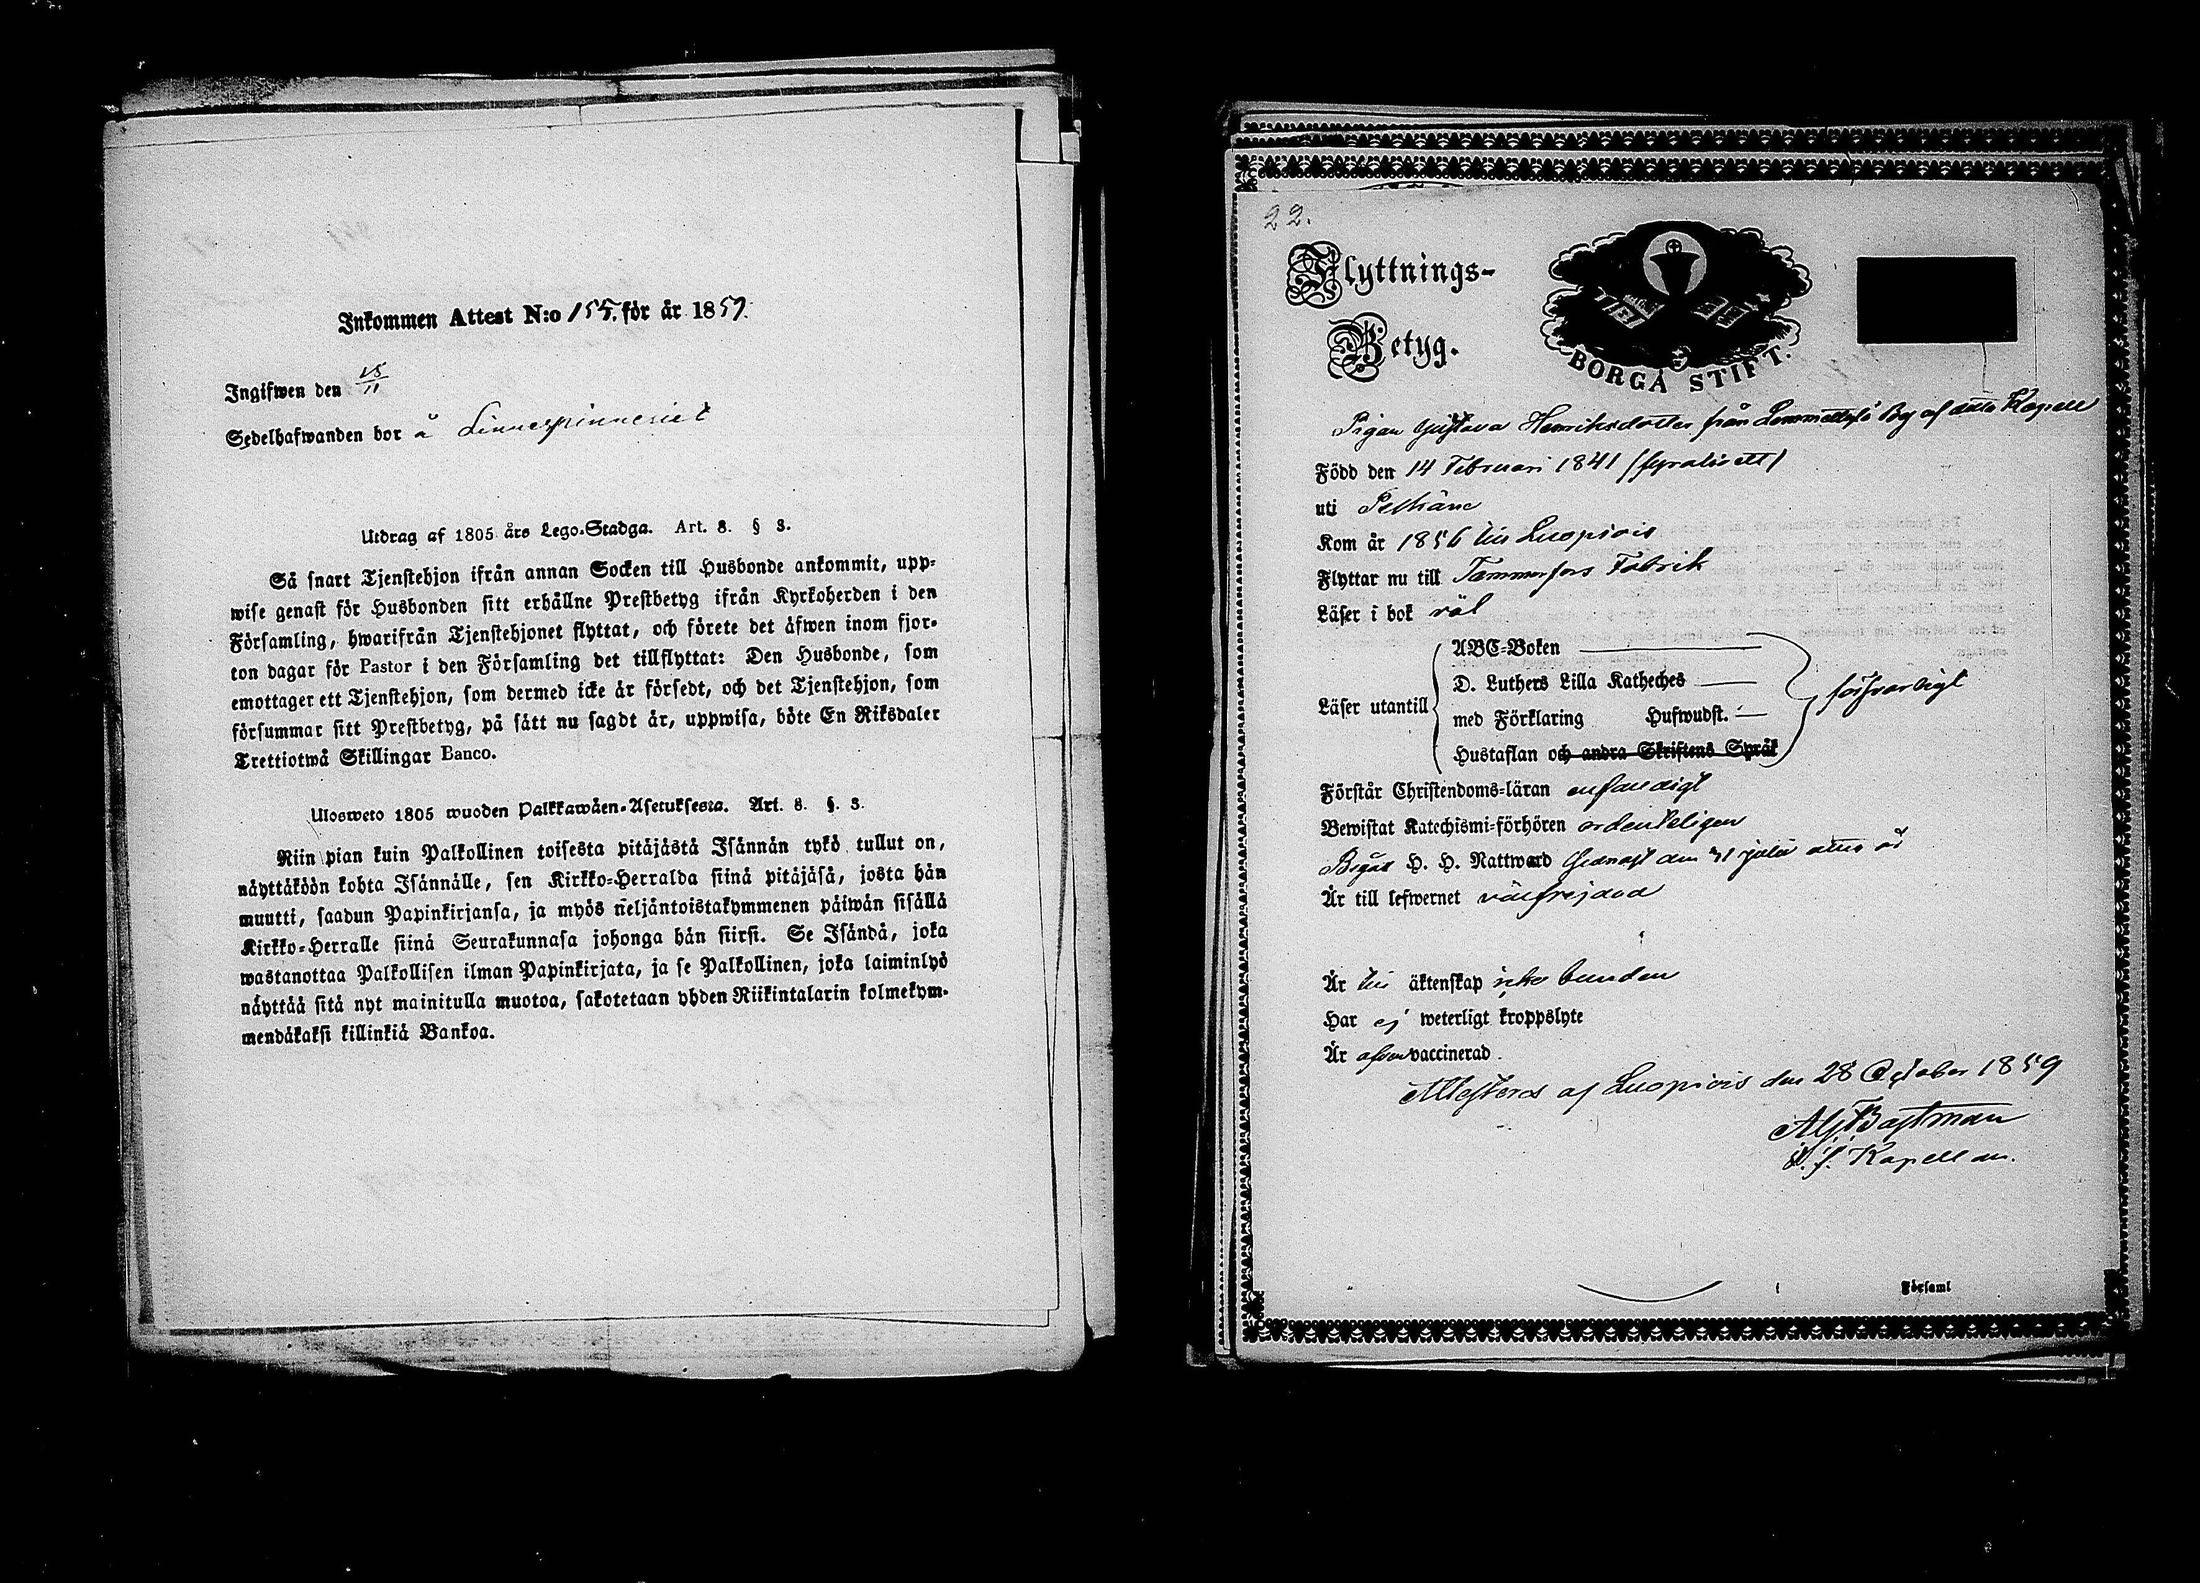 Inkommen Attest N:o 155. för år 1859.
Ingifwen den 18/11
Sedelhafwanden bor å Linnespinneriet
Utdrag af 1805 års Lego-Stadga. Art. 8. § 3.
Så snart Tjenstehjon ifrån annan Socken till Husbonde ankommit, upp-
wise genast för Husbonden sitt erhållne Prestbetyg ifrån Kyrkoherden i den
Församling, hwarifrån Tjenstehjonet flyttat, och förete det äfwen inom fjor-
ton dagar för Pastor i den Församling det tillflyttat: Den Husbonde, som
emottager ett Tjenstehjon, som dermed icke är försedt, och det Tjenstehjon, som
försummar sitt Prestbetyg, på sätt nu sagdt är, uppwisa, böte En Riksdaler
Trettiotwå Skillingar Banco.
Ulosweto 1805 wuoden Palkkawäen-Asetuksesta. Art. 8. §. 3.
Niin pian kuin Palkollinen toisesta pitäjästä Isännän tykö tullut on,
näyttäköön kohta Isännälle, sen Kirkko-Herralda siinä pitäjäsä, josta hän
muutti, saadun Papinkirjansa, ja myös neljäntoistakymmenen päiwän sisällä
Kirkko-Herralle siinä Seurakunnasa johonga hän siirsi. Se Isändä, joka
wastanottaa Palkollisen ilman Papinkirjata, ja se Palkollinen, joka laiminlyö
näyttää sitä nyt mainitulla muotoa, sakotetaan yhden Riikintalarin kolmekym-
mendäkaksi killinkiä Bankoa.
22.
Flyttnings-
Betyg.
BORGÅ STIFT.
Pigan Gustava Henriksdotter från Lemmettylä By af detta Kapell
Född den 14 Februari 1841 (fyratioett)
uti Pelkäne
Kom år 1856 till Luopiois
Flyttar nu till Tammerfors Fabrik
Läser i bok väl
ABC-Boken
D. Luthers Lilla Katheches
Läser utantill
med Förklaring Hufwudst.
försvarligt
Hustaflan och andra Skriftens Språk
Förstår Christendoms-läran enfaldigt
Bewistat Katechismi-förhören ordentligen
Begått H. H. Nattward senast den 31 julii detta år
Är till lefwernet välfrejdad
Är till äktenskap icke bunden
Har ej weterligt kroppslyte
Är äfven vaccinerad.
Attesterad af Luopiois den 28 October 1859
Alf Bastman
v. f. Kapellan.
Församl